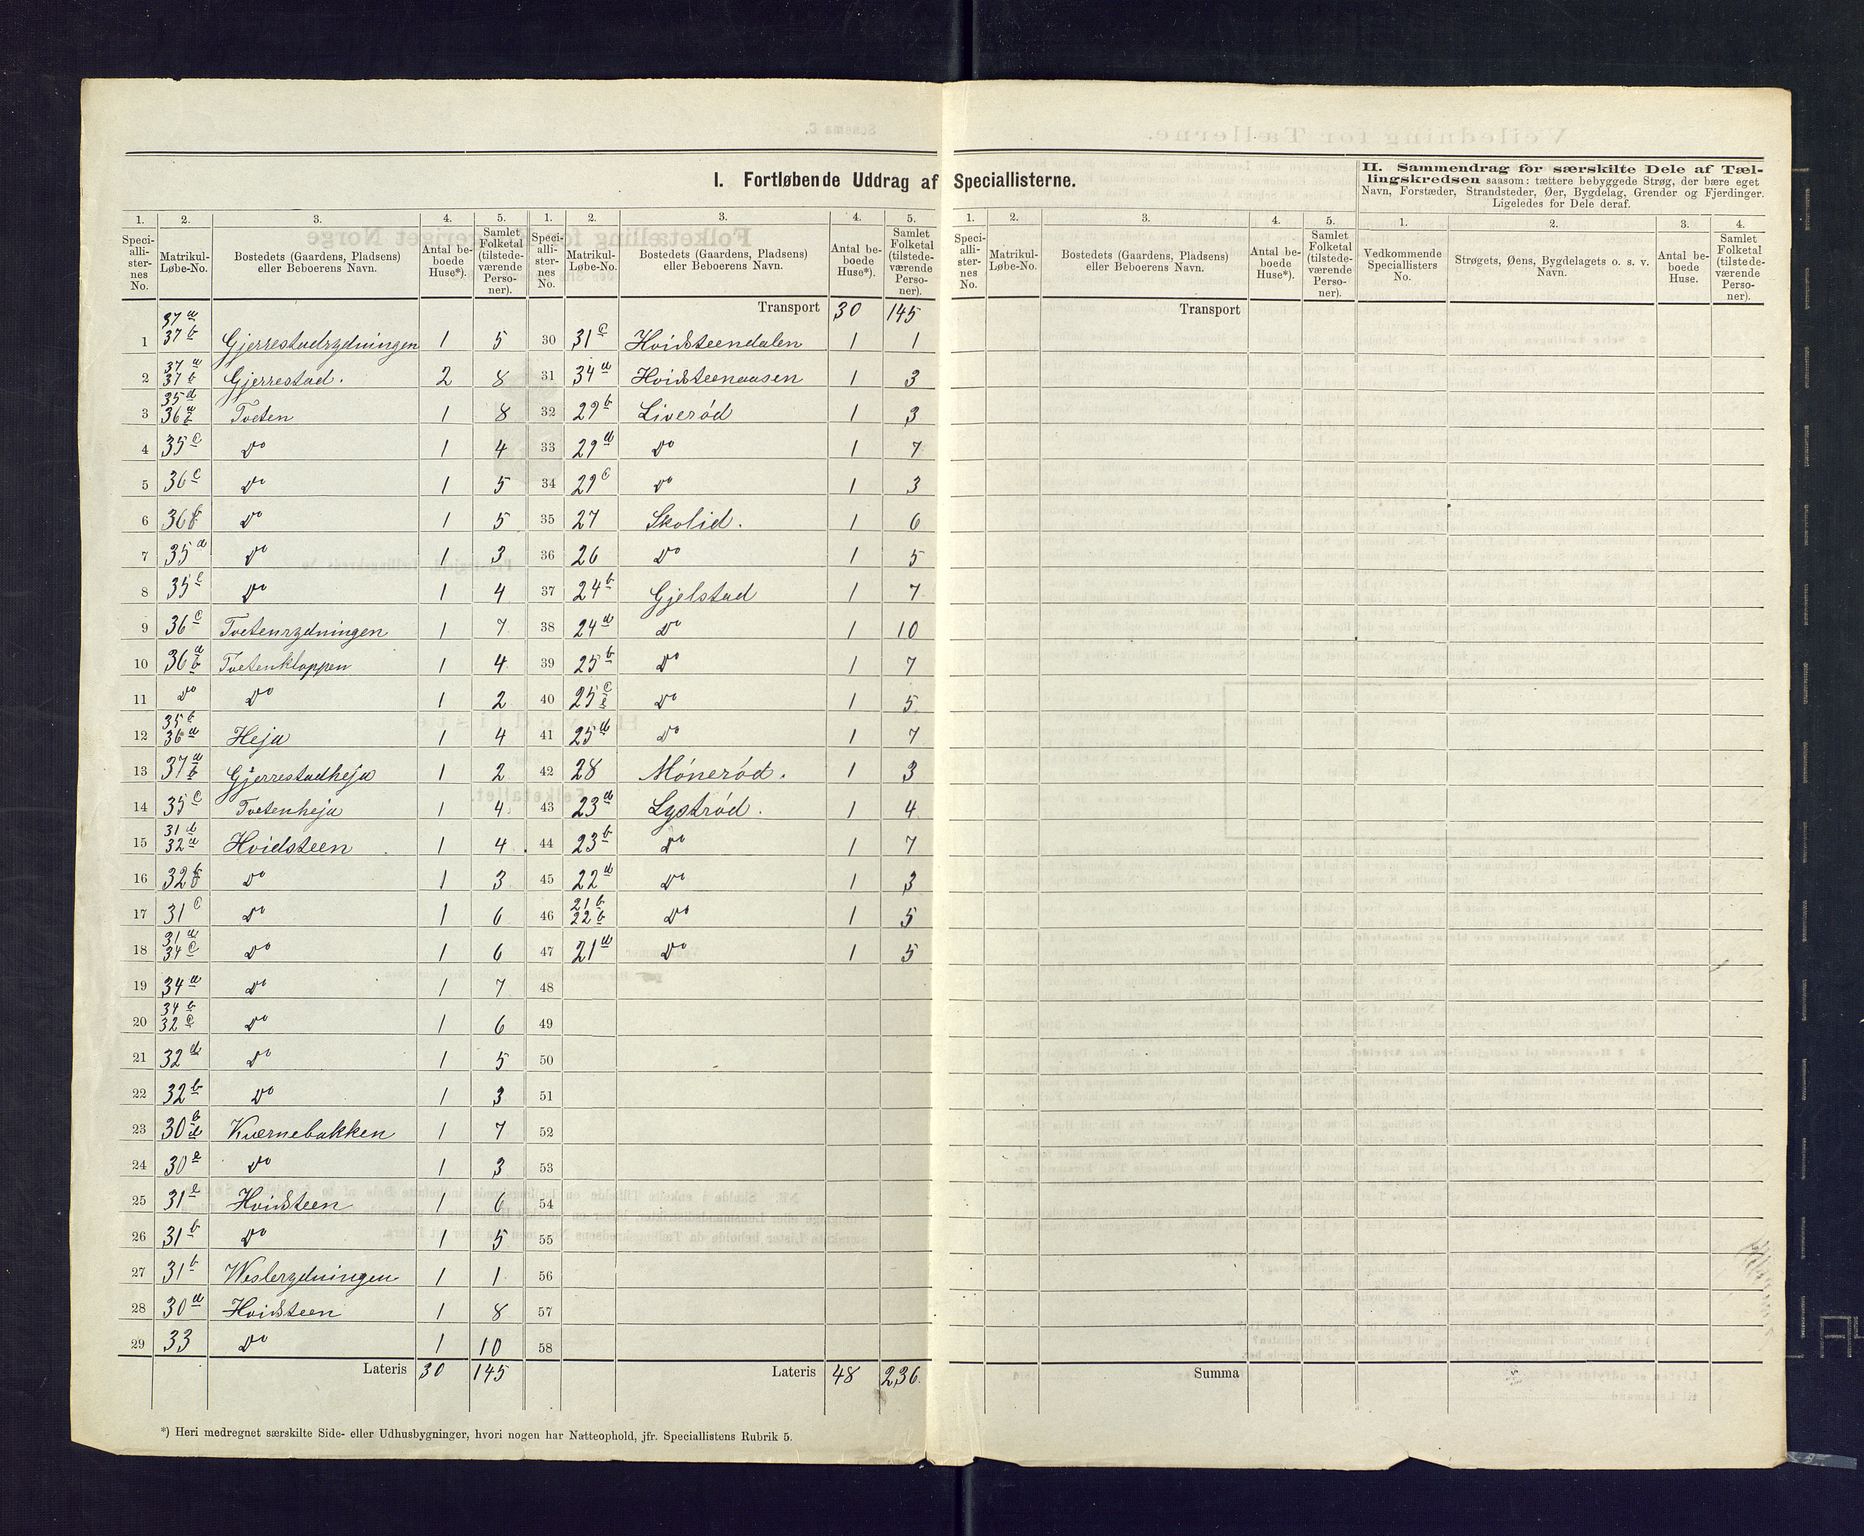 I. Fortløbende Uddrag af Speciallisterne.
II. Sammendrag for særskilte Dele af Tællingskredsen saasom: tættere bebyggede Strøg, der bære eget Navn, Forstæder, Strandsteder, Øer, Bygdelag, Grender og Fjerdinger. Ligeledes for Dele deraf.
1. 2. 3. 4. 5. 1. 2. 3. 4. 5.
Speciallisternes No. Matrikul-Løbe-No. Bostedets (Gaardens, Pladsens) eller Beboerens Navn. Antal beboede Huse*). Samlet Folketal (tilstedeværende Personer). Speciallisternes No. Matrikul-Løbe-No. Bostedets (Gaardens, Pladsens) eller Beboerens Navn. Antal beboede Huse*). Samlet Folketal (tilstedeværende Personer).
1. 2. 3. 4. 5. 1. 2. 3. 4.
Speciallisternes No. Matrikul-Løbe-No. Bostedets (Gaardens, Pladsens) eller Beboerens Navn. Antal beboede Huse*). Samlet Folketal (tilstedeværende Personer). Vedkommende Speciallisters No. Strøgets, Øens, Bygdelagets o. s. v. Navn. Antal beboede Huse. Samlet Folketal (tilstedeværende Personer).
Transport 30 145
Transport
1 37a 37b Gjerrestadrydningen 1 5
2 37a 37b Gjerrestad. 2 8
3 35d 36a b Tveten 1 8
4 35c Do 1 4
5 36c Do 1 5
6 36b Do 1 5
7 35a Do 1 3
8 35c Do 1 4
9 36c Tvetenrydningen 1 7
10 36a b Tvetenkloppen 1 4
11 Do Do 1 2
12 35b 36a Heja 1 4
13 37a b Gjerrestadheja 1 2
14 35c Tvetenheja 1 4
15 31d 32a Hvidsteen 1 4
16 32b Do 1 3
17 31c Do 1 6
18 31a 34c Do 1 6
19 34a Do 1 7
20 34b 32c Do 1 6
21 32d Do 1 5
22 32b Do 1 3
23 30b d Kværnebakken 1 7
24 30e Do 1 3
25 31e Hvidsteen 1 6
26 31b Do 1 5
27 31b Weslerydningen 1 1
28 30a Hvidsteen 1 8
29 33 Do 1 10
Lateris 30 145
30 31c Hvidsteendalen 1 1
31 34a Hvidsteenaasen 1 3
32 29b Liverød 1 3
33 29a Do 1 7
34 29c Do 1 3
35 27 Skolid. 1 6
36 26 Do 1 5
37 24b Gjelstad 1 7
38 24a Do 1 10
39 25b Do 1 7
40 25c Do 1 5
41 25a Do 1 7
42 28 Mønerød. 1 3
43 23a Lystrød. 1 4
44 23b Do 1 7
45 22a Do 1 3
46 21b 22b Do 1 5
47 21a Do 1 5
48
49
50
51
52
53
54
55
56
57
58
Lateris 48 236
Summa
*) Heri medregnet særskilte Side- eller Udhusbygninger, hvori nogen har Natteophold, jfr. Speciallistens Rubrik 5.